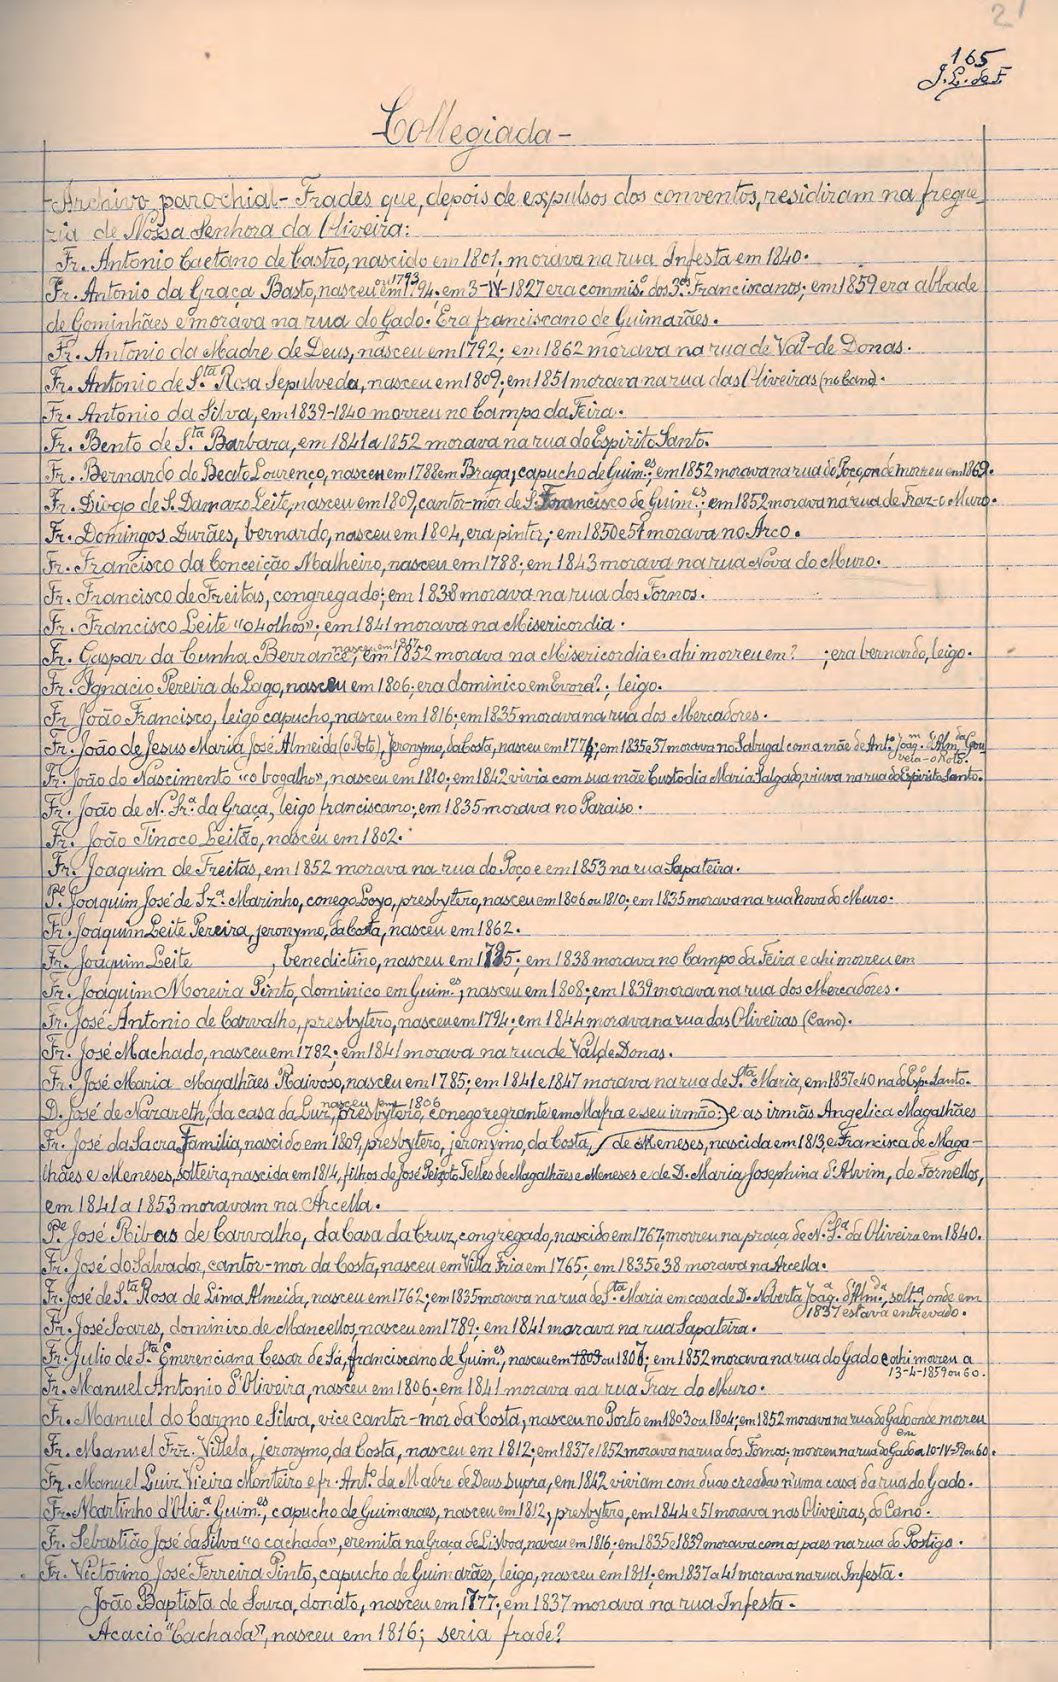 21
165
J. L. de F.
Collegiada-
Archivo parochial - Frades que, depois de expulsos dos conventos, residiram na fregue-
zia de Nossa Senhora da Oliveira:
Fr. Antonio Caetano de Castro, nascido em 1801; morava na rua Infesta em 1840.
Fr. Antonio da Graça Basto, nasceu em 1794 ou 1793; em 3-IV-1827 era commis.º dos 3.os Franciscanos; em 1859 era abbade
de Gominhães e morava na rua do Gado. Era franciscano de Guimarães.
Fr. Antonio da Madre de Deus, nasceu em 1792; em 1862 morava na rua de Val-de Donas.
Fr. Antonio de S.ta Rosa Sepulveda, nasceu em 1809; em 1851 morava na rua das Oliveiras (no Cano).
Fr. Antonio da Silva, em 1839-1840 morreu no Campo da Feira.
Fr. Bento de S.ta Barbara, em 1841 a 1852 morava na rua do Espirito Santo.
Fr. Bernardo do Beato Lourenço, nasceu em 1788 em Braga, capucho de Guim.es; em 1852 morava na rua do Poço, onde morreu em 1869.
Fr. Diogo de S. Damazo Leite, nasceu em 1809, cantor-mór de S. Francisco de Guim.es; em 1852 morava na rua de Traz-o Muro.
Fr. Domingos Durães, bernardo, nasceu em 1804, era pintor; em 1850 e 54 morava no Arco.
Fr. Francisco da Conceição Malheiro, nasceu em 1788; em 1843 morava na rua Nova do Muro.
Fr. Francisco de Freitas, congregado; em 1838 morava na rua dos Fornos.
Fr. Francisco Leite "o 4 olhos"; em 1841 morava na Misericordia.
Fr. Gaspar da Cunha Berrance, nasceu em 1817; em 1852 morava na Misericordia e ahi morreu em? ; era bernardo, leigo.
Fr. Ignacio Pereira do Lago, nasceu em 1806; era dominico em Evora?; leigo.
Fr. João Francisco, leigo capucho, nasceu em 1816; em 1835 morava na rua dos Mercadores.
Fr. João de Jesus Maria José Almeida (o Roto), Jeronymo, da Costa, nasceu em 1774; em 1835 e 37 morava no Sabugal com a mãe de Ant.º Joaq.m d'Alm.da Gou-
veia-o Roto.
Fr. João do Nascimento "o bogalho", nasceu em 1810; em 1842 vivia com sua mãe Custodia Maria Salgado, viuva na rua do Espirito Santo.
Fr. João de N. Sr.a da Graça, leigo franciscano; em 1835 morava no Paraiso.
Fr. João Tinoco Leitão, nasceu em 1802.
Fr. Joaquim de Freitas, em 1852 morava na rua do Poço e em 1853 na rua Sapateira.
P.e Joaquim José de Sz.a Marinho, conego Loyo, presbytero, nasceu em 1806 ou 1810; em 1835 morava na rua Nova do Muro.
Fr. Joaquim Leite Pereira, jeronymo, da Costa, nasceu em 1862.
Fr. Joaquim Leite , benedictino, nasceu em 1785; em 1838 morava no Campo da Feira e ahi morreu em
Fr. Joaquim Moreira Pinto, dominico em Guim.es, nasceu em 1808; em 1839 morava na rua dos Mercadores.
Fr. José Antonio de Carvalho, presbytero, nasceu em 1794; em 1844 morava na rua das Oliveiras (Cano).
Fr. José Machado, nasceu em 1782; em 1841 morava na rua de Val de Donas.
Fr. José Maria Magalhães Raivoso, nasceu em 1785; em 1841 e 1847 morava na rua de S.ta Maria, em 1837 e 40 na do Esp. Santo.
D. José de Nazareth, da casa da Luz, nasceu em 1806 presbytero, conego regrante em Mafra e seu irmão: e as irmãs Angelica Magalhães
Fr. José da Sacra Familia, nascido em 1809, presbytero, jeronymo, da Costa, de Meneses, nascida em 1813, e Francisca de Maga-
lhães e Meneses, solteira, nascida em 1814, filhos de José Peixoto Telles de Magalhães e Meneses e de D. Maria Josephina d'Alvim, de Fornellos,
em 1841 a 1853 moravam na Arcella.
P.e José Ribas de Carvalho, da Casa da Cruz, congregado, nascido em 1767, morreu na praça de N. S.a da Oliveira em 1840.
Fr. José do Salvador, cantor-mor da Costa, nasceu em Villa Fria em 1765; em 1835 e 38 morava na Arcella.
Fr. José de S.ta Rosa de Lima Almeida, nasceu em 1762; em 1835 morava na rua de S.ta Maria em casa de D. Noberta Joaq.a d'Alm.da, solt.a, onde em
1837 estava entrevado.
Fr. José Soares, dominico de Mancellos, nasceu em 1789; em 1841 morava na rua Sapateira.
Fr. Julio de S.ta Emerenciana Cesar de Sá, franciscano de Guim.es, nasceu em 1803 ou 1807; em 1852 morava na rua do Gado e ahi morreu a
13-4-1859 ou 60.
Fr. Manuel Antonio d'Oliveira, nasceu em 1806; em 1841 morava na rua Traz do Muro.
Fr. Manuel do Carmo e Silva, vice cantor-mór da Costa, nasceu no Porto em 1803 ou 1804; em 1852 morava na rua do Gado onde morreu
em
Fr. Manuel Frz. Villela, jeronymo, da Costa, nasceu em 1812; em 1837 e 1852 morava na rua dos Fornos; morreu na rua do Gado a 10-IV-59 ou 60.
Fr. Manuel Luiz Vieira Monteiro e fr. Ant.º da Madre de Deus supra, em 1842 viviam com duas creadas n'uma casa da rua do Gado.
Fr. Martinho d'Oliv.a Guim.es, capucho de Guimarães, nasceu em 1812, presbytero, em 1844 e 51 morava nas Oliveiras, do Cano.
Fr. Sebastião José da Silva "o cachada", eremita na Graça de Lisboa, nasceu em 1816; em 1835 e 1839 morava com os paes na rua do Postigo.
Fr. Victorino José Ferreira Pinto, capucho de Guimarães, leigo, nasceu em 1811; em 1837 a 41 morava na rua Infesta.
João Baptista de Souza, donato, nasceu em 1777; em 1837 morava na rua Infesta.
Acacio "Cachada", nasceu em 1816; seria frade?